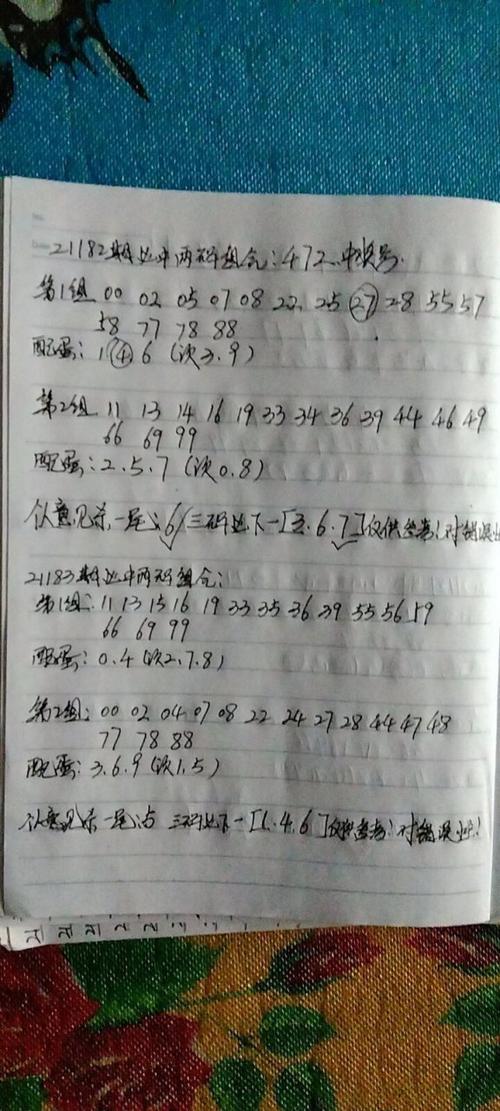 21182期必中两码组合:472.中奖号.
第1组 00 02 05 07 08 22 25 27 28 55 57
58 77 78 88
配蛋: 1 4 6 (次3.9)
第2组 11 13 14 16 19 33 34 36 39 44 46 49
66 69 99
配蛋: 2.5.7 (次0.8)
个人意见杀一尾:6/三码必下一[3.6.7]仅供参考!对错
21183期必中两码组合:
第1组: 11 13 15 16 19 33 35 36 39 55 56 59
66 69 99
配蛋: 0.4 (次2.7.8)
第2组: 00 02 04 07 08 22 24 27 28 44 47 48
77 78 88
配蛋: 3.6.9 (次1.5)
个人意见杀一尾: 三码必下一[1.4.6]仅供参考!对错误业!